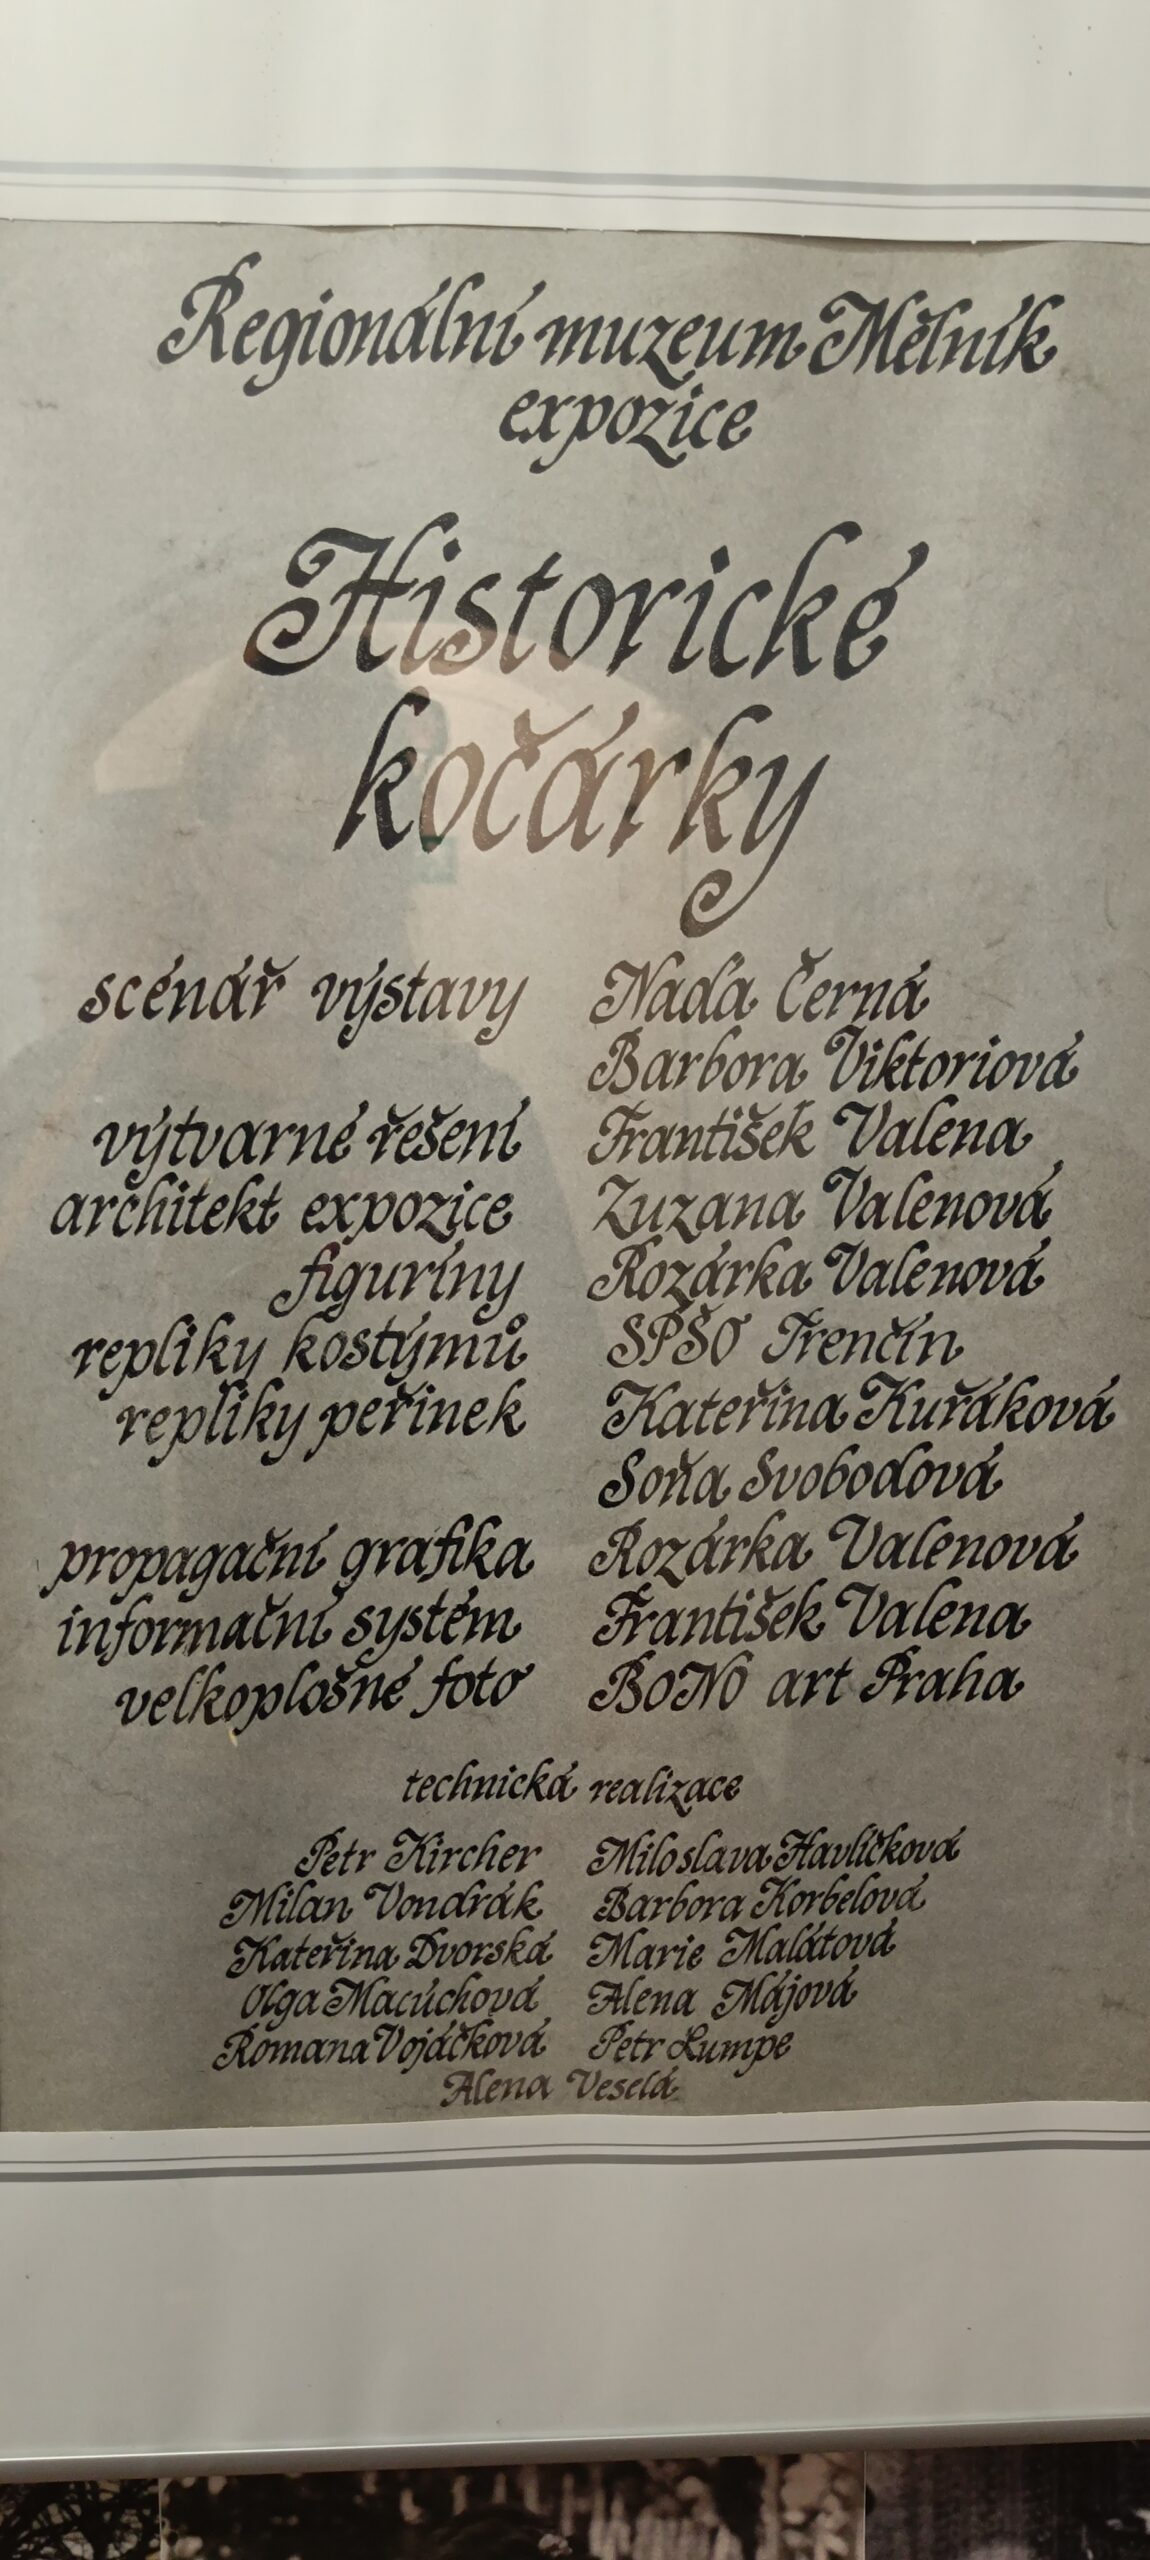 Regionální muzeum Mělník
expozice
Historické
kočárky
scénář výstavy Naďa Černá
Barbora Viktoriová
výtvarné řešení František Valena
architekt expozice Zuzana Valenová
figuríny Rozárka Valenová
repliky kostýmů SPŠO Trenčín
repliky peřinek Kateřina Kuřáková
Soňa Svobodová
propagační grafika Rozárka Valenová
informační systém František Valena
velkoplošné foto BoNo art Praha
technická realizace
Petr Kircher Miloslava Havlíčková
Milan Vondrák Barbora Korbelová
Kateřina Dvorská Marie Malátová
Olga Macúchová Alena Májová
Romana Vojáčková Petr Lumpe
Alena Veselá